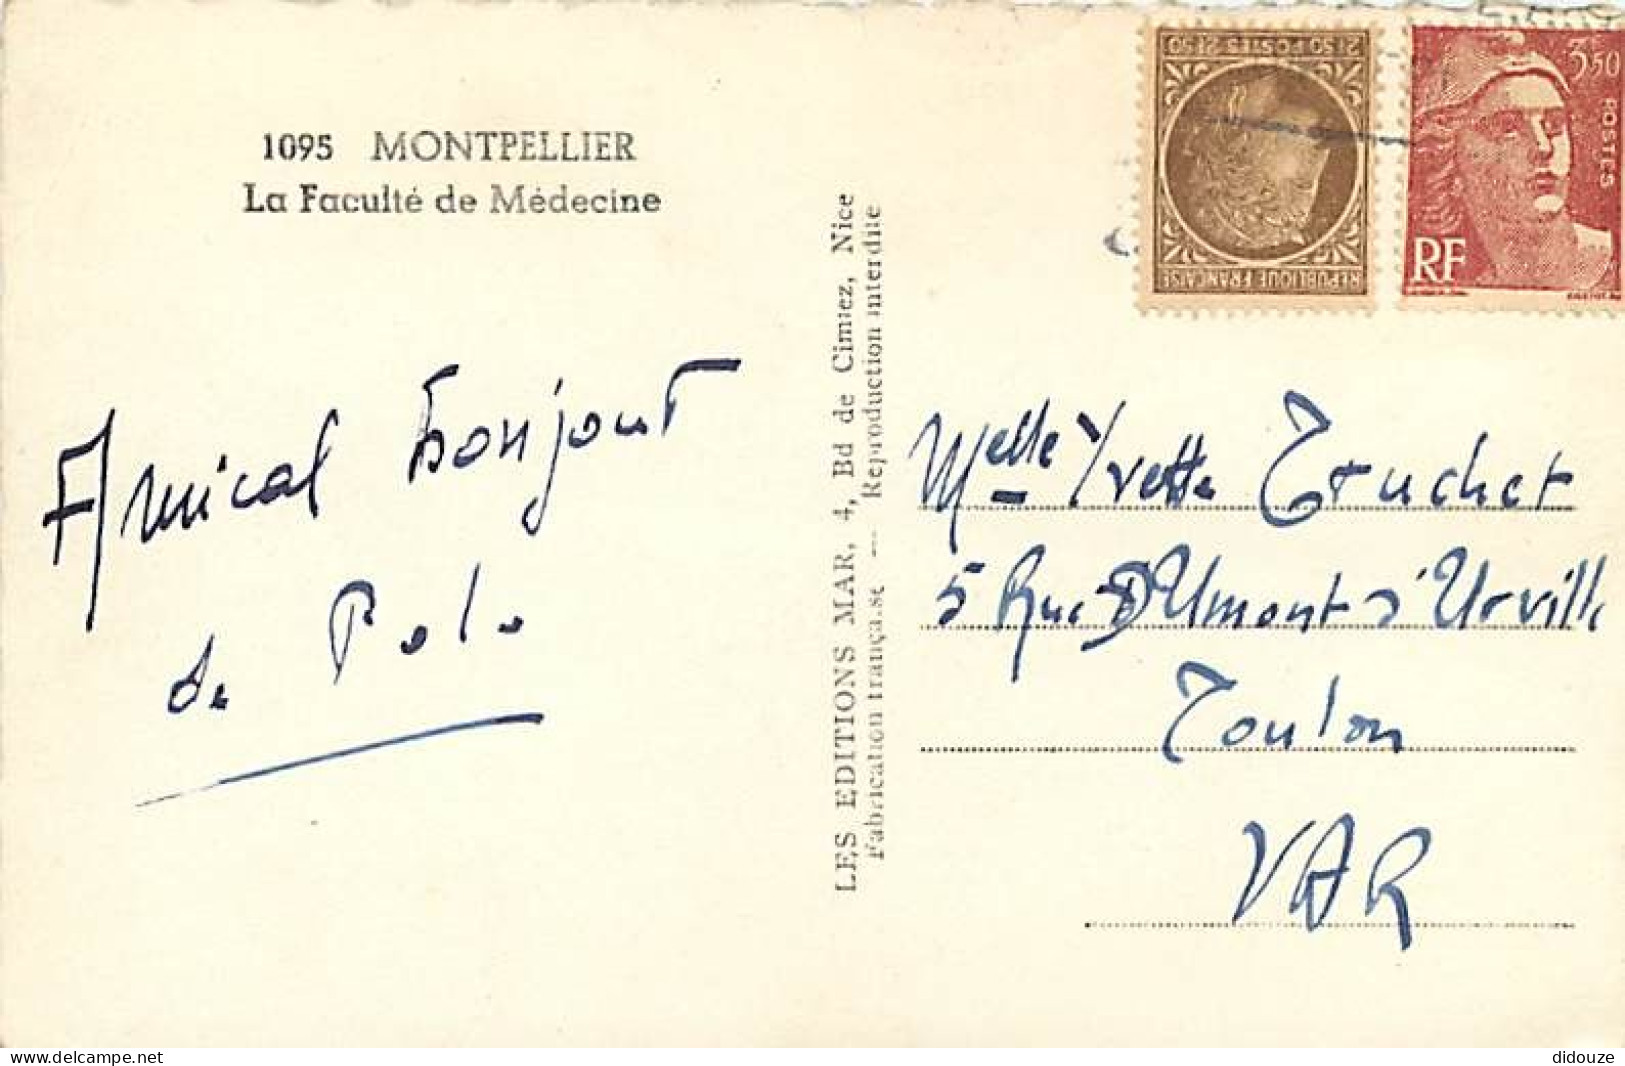 1095 MONTPELLIER
La Faculté de Médecine
Amical bonjour
de Polo
LES EDITIONS MAR, 4, Bd de Cimiez, Nice
Fabrication française — Reproduction interdite
2F50 POSTES 2F50
REPUBLIQUE FRANÇAISE
3F50
POSTES
RF
Melle Yvette Truchet
5 Rue D'Umont d'Urville
Toulon
VAR
delcampe.net
didouze